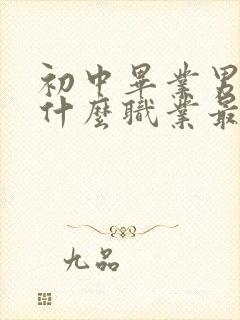 初中畢業男
什麼職業最
九品